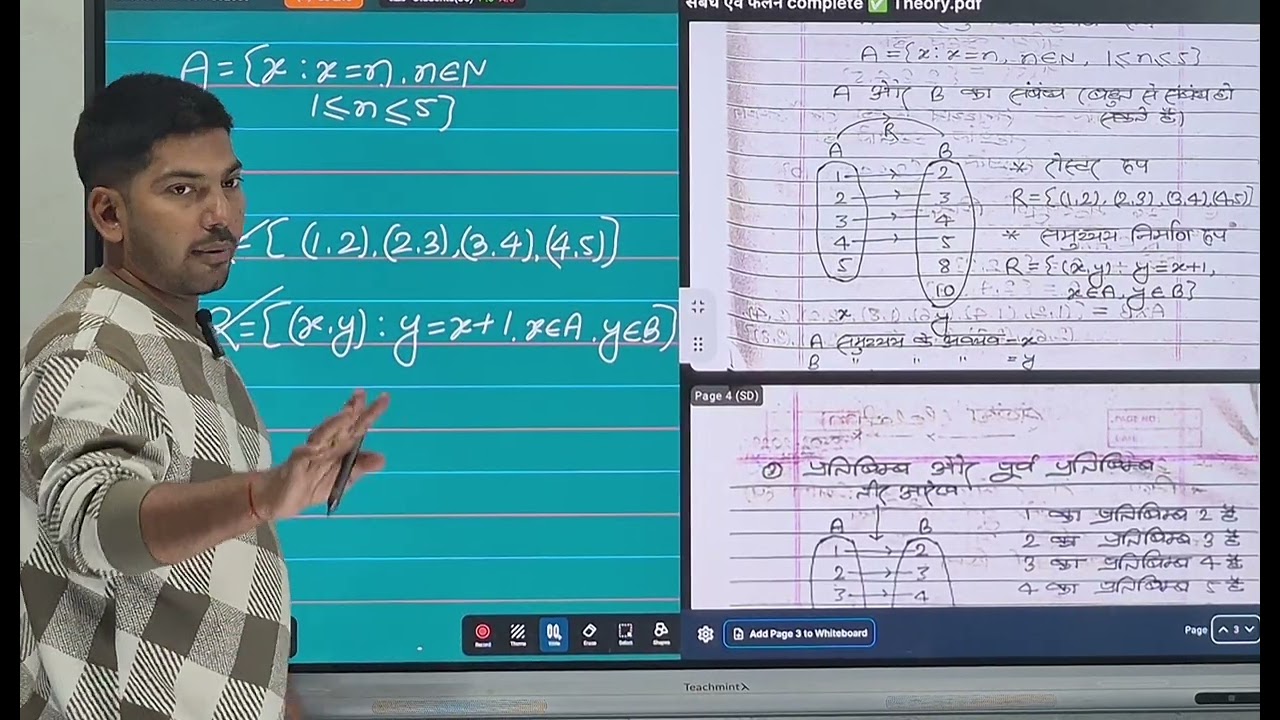 संबंध एवं फलन complete ✅ Theory.pdf
A = {x : x = n, n ∈ N
1 ≤ n ≤ 5}
= { (1,2), (2,3), (3,4), (4,5)}
R = {(x,y) : y = x+1, x ∈ A, y ∈ B}
A = {x : x = n, n ∈ N, 1 ≤ n ≤ 5}
A और B का संबंध (बहुत से संबंध हो
सकते है)
R
A B
1 → 2
2 → 3
3 → 4
4 → 5
5 8
10
* रोस्टर रूप
R = {(1,2), (2,3), (3,4), (4,5)}
* समुच्चय निर्माण रूप
R = {(x,y) : y = x+1,
x ∈ A, y ∈ B}
x y
A समुच्चय के अवयव = x
B " " " = y
Page 4 (SD)
PAGE NO.
DATE
② प्रतिबिम्ब और पूर्व प्रतिबिम्ब
तीर आरेख
A B
1 → 2
2 → 3
3 → 4
1 का प्रतिबिम्ब 2 है
2 का प्रतिबिम्ब 3 है
3 का प्रतिबिम्ब 4 है
4 का प्रतिबिम्ब 5 है
Record Theme Write Erase Select Shapes
Add Page 3 to Whiteboard
Page 3
Teachmint